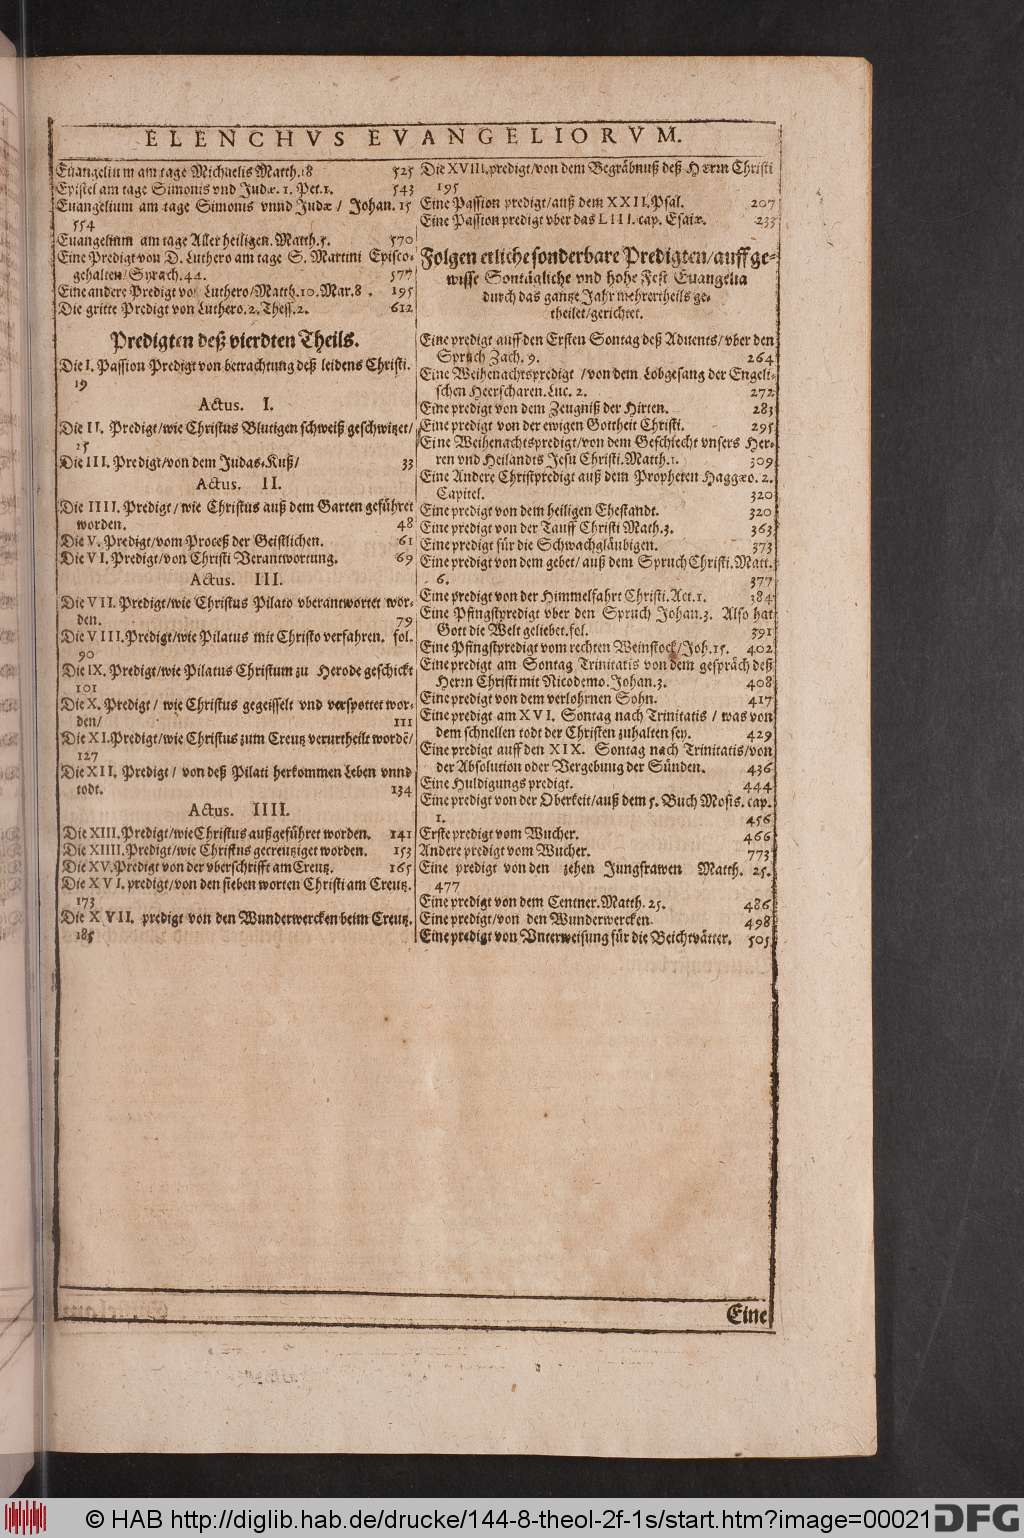 ELENCHVS EVANGELIORVM.
Euangelium am tage Michaelis Matth.18 525
Epistel am tage Simonis vnd Judæ. 1. Pet.1. 543
Euangelium am tage Simonis vnnd Judæ / Johan. 15
554
Euangelium am tage Aller heiligen. Matth.5. 570
Eine Predigt von D. Luthero am tage S. Martini Episco-
gehalten/Syrach.44. 577
Eine andere Predigt vo Luthero/Matth.10.Mar.8. 195
Die gritte Predigt von Luthero.2.Thess.2. 612
Predigten deß vierdten Theils.
Die I. Passion Predigt von betrachtung deß leidens Christi.
19
Actus. I.
Die II. Predigt/wie Christus Blutigen schweiß geschwitzet/
25
Die III. Predigt/von dem Judas-Kuß/ 33
Actus. II.
Die IIII. Predigt/wie Christus auß dem Garten geführet
worden. 48
Die V. Predigt/vom Proceß der Geistlichen. 61
Die VI. Predigt/von Christi Verantwortung. 69
Actus. III.
Die VII. Predigt/wie Christus Pilato vberantwortet wor-
den. 79
Die VIII. Predigt/wie Pilatus mit Christo verfahren. fol.
90
Die IX. Predigt/wie Pilatus Christum zu Herode geschickt
101
Die X. Predigt / wie Christus gegeisselt vnd verspottet wor-
den/ 111
Die XI.Predigt/wie Christus zum Creutz verurtheilt wordẽ/
127
Die XII. Predigt / von deß Pilati herkommen Leben vnnd
todt. 134
Actus. IIII.
Die XIII.Predigt/wie Christus außgeführet worden. 141
Die XIIII.Predigt/wie Christus gecreutziget worden. 153
Die XV.Predigt von der vberschrifft am Creutz. 165
Die XVI. predigt/von den sieben worten Christi am Creutz.
173
Die XVII. predigt von den Wunderwercken beim Creutz.
185
Die XVIII.predigt/von dem Begräbnuß deß Herrn Christi
195
Eine Passion predigt/auß dem XXII.Psal. 207
Eine Passion predigt vber das LIII. cap. Esaiæ. 233
Folgen etliche sonderbare Predigten/auff ge-
wisse Sontägliche vnd hohe Fest Euangelia
durch das gantze Jahr mehrertheils ge-
theilet/gerichtet.
Eine predigt auff den Ersten Sontag deß Aduents/vber den
Spruch Zach. 9. 264
Eine Weihenachtspredigt /von dem Lobgesang der Engeli-
schen Heerscharen.Luc. 2. 272
Eine predigt von dem Zeugniß der Hirten. 283
Eine predigt von der ewigen Gottheit Christi. 295
Eine Weihenachtspredigt/von dem Geschlecht vnsers Her-
ren vnd Heilandts Jesu Christi.Matth.1. 309
Eine Andere Christpredigt auß dem Propheten Haggæo. 2.
Capitel. 320
Eine predigt von dem heiligen Ehestandt. 320
Eine predigt von der Tauff Christi Math.3. 363
Eine predigt für die Schwachgläubigen. 373
Eine predigt von dem gebet/ auß dem Spruch Christi.Matt.
6. 377
Eine predigt von der Himmelfahrt Christi.Act.1. 384
Eine Pfingstpredigt vber den Spruch Johan.3. Also hat
Gott die Welt geliebet.fol. 391
Eine Pfingstpredigt vom rechten Weinstock/Joh.15. 402
Eine predigt am Sontag Trinitatis von dem gespräch deß
Herrn Christi mit Nicodemo.Johan.3. 408
Eine predigt von dem verlohrnen Sohn. 417
Eine predigt am XVI. Sontag nach Trinitatis / was von
dem schnellen todt der Christen zuhalten sey. 429
Eine predigt auff den XIX. Sontag nach Trinitatis/von
der Absolution oder Vergebung der Sünden. 436
Eine Huldigungs predigt. 444
Eine predigt von der Oberkeit/auß dem 5. Buch Mosis. cap.
1. 456
Erste predigt vom Wucher. 466
Andere predigt vom Wucher. 773
Eine predigt von den zehen Jungfrawen Matth. 25.
477
Eine predigt von dem Centner.Matth. 25. 486
Eine predigt/von den Wunderwercken. 498
Eine predigt von Vnterweisung für die Beichtvätter. 505
Eine
© HAB http://diglib.hab.de/drucke/144-8-theol-2f-1s/start.htm?image=00021
DFG